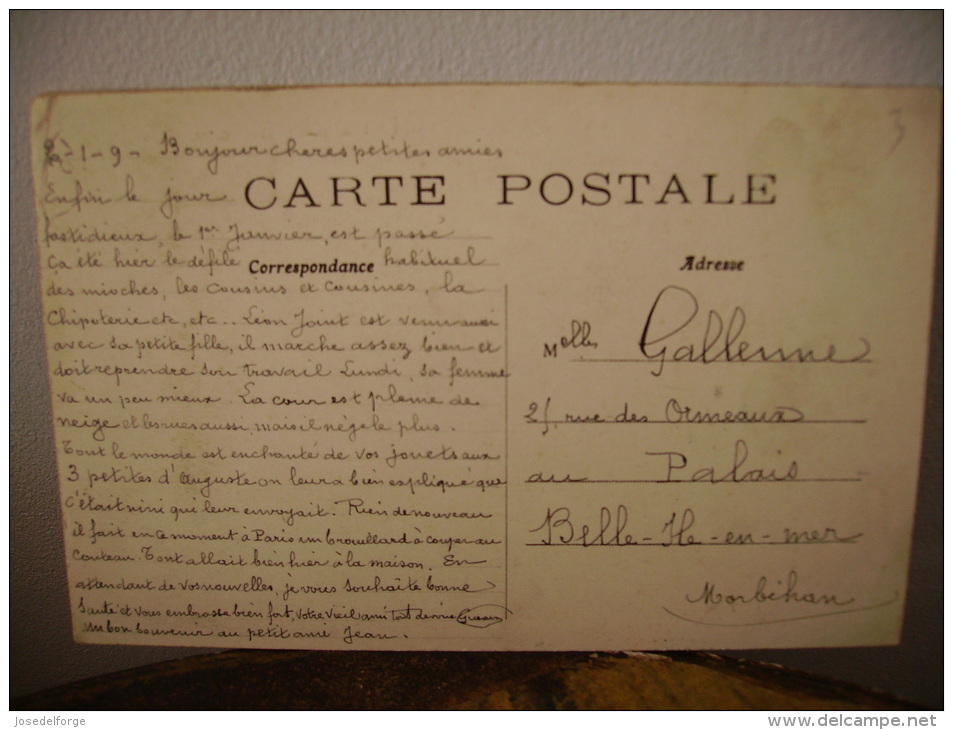 2-1-9- Bonjour chères petites amies
CARTE POSTALE
Enfin le jour
fastidieux, le 1er Janvier, est passé
Ça été hier le défilé habituel
des mioches, les cousins et cousines, la
Chipoterie etc, etc.. Léon Joint est venu aussi
avec sa petite fille, il marche assez bien et
doit reprendre son travail Lundi, sa femme
va un peu mieux. La cour est pleine de
neige et les rues aussi, mais il nège plus.
Tout le monde est enchanté de vos jouets aux
3 petites d'Auguste on leur a bien expliqué que
c'était nini qui leur envoyait. Rien de nouveau
il fait en ce moment à Paris un brouillard à couper au
couteau. Tout allait bien hier à la maison. En
attendant de vos nouvelles, je vous souhaite bonne
santé et vous embrasse bien fort, votre vieil ami
un bon souvenir au petit ami Jean.
Correspondance
Adresse
Melles Gallenne
25, rue des Ormeaux
au Palais
Belle-Ile-en-mer
Morbihan
3
Josedelforge
www.delcampe.net